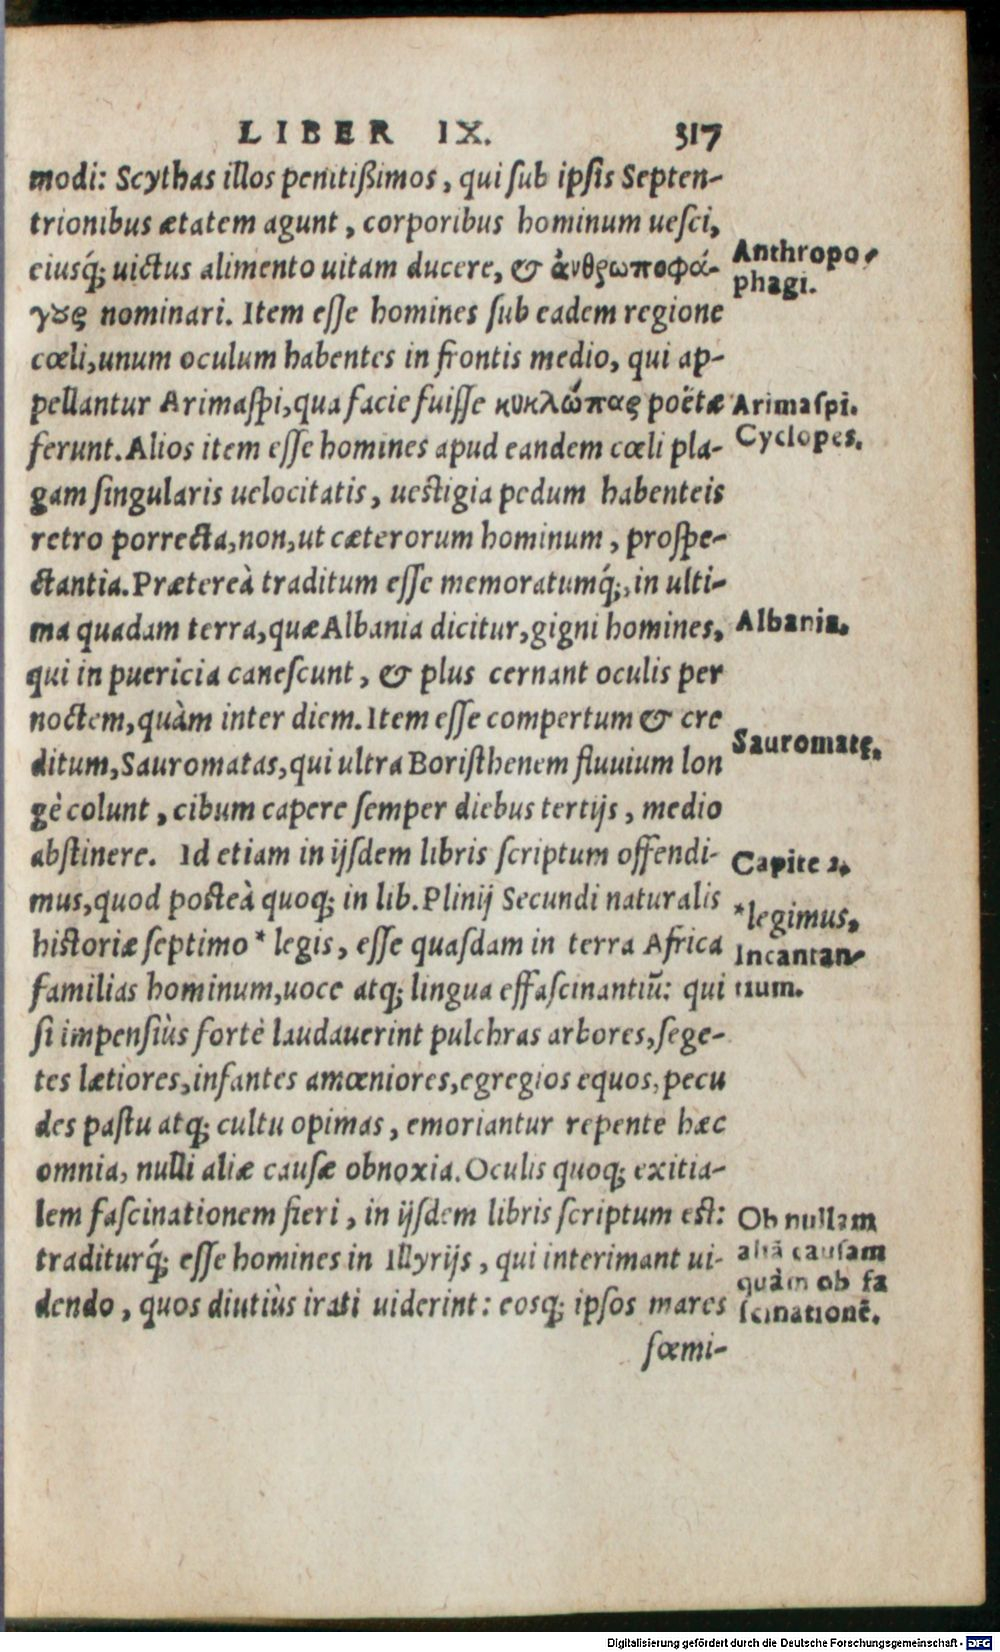 LIBER IX. 317
modi: Scythas illos penitißimos, qui sub ipsis Septen-
trionibus ætatem agunt, corporibus hominum uesci,
eiusq́; uictus alimento uitam ducere, & ἀνθρωποφά-
γους nominari. Item esse homines sub eadem regione
cœli, unum oculum habentes in frontis medio, qui ap-
pellantur Arimaspi, qua facie fuisse κυκλώπας poëtæ
ferunt. Alios item esse homines apud eandem cœli pla-
gam singularis uelocitatis, uestigia pedum habenteis
retro porrecta, non, ut cæterorum hominum, prospe-
ctantia. Prætereà traditum esse memoratumq́;, in ulti-
ma quadam terra, quæ Albania dicitur, gigni homines,
qui in puericia canescunt, & plus cernant oculis per
noctem, quàm inter diem. Item esse compertum & cre
ditum, Sauromatas, qui ultra Boristhenem fluuium lon
gè colunt, cibum capere semper diebus tertijs, medio
abstinere. Id etiam in ijsdem libris scriptum offendi-
mus, quod posteà quoq; in lib. Plinij Secundi naturalis
historiæ septimo * legis, esse quasdam in terra Africa
familias hominum, uoce atq; lingua effascinantiũ: qui
si impensiùs fortè laudauerint pulchras arbores, sege-
tes lætiores, infantes amœniores, egregios equos, pecu
des pastu atq; cultu opimas, emoriantur repente hæc
omnia, nulli aliæ causæ obnoxia. Oculis quoq; exitia-
lem fascinationem fieri, in ijsdem libris scriptum est:
traditurq́; esse homines in Illyrijs, qui interimant ui-
dendo, quos diutiùs irati uiderint: eosq; ipsos mares
fœmi-
Anthropo-
phagi.
Arimaspi.
Cyclopes.
Albania.
Sauromatę.
Capite 2.
*legimus,
Incantan-
tium.
Ob nullam
aliã causam
quàm ob fa
scinationẽ.
Digitalisierung gefördert durch die Deutsche Forschungsgemeinschaft - DFG